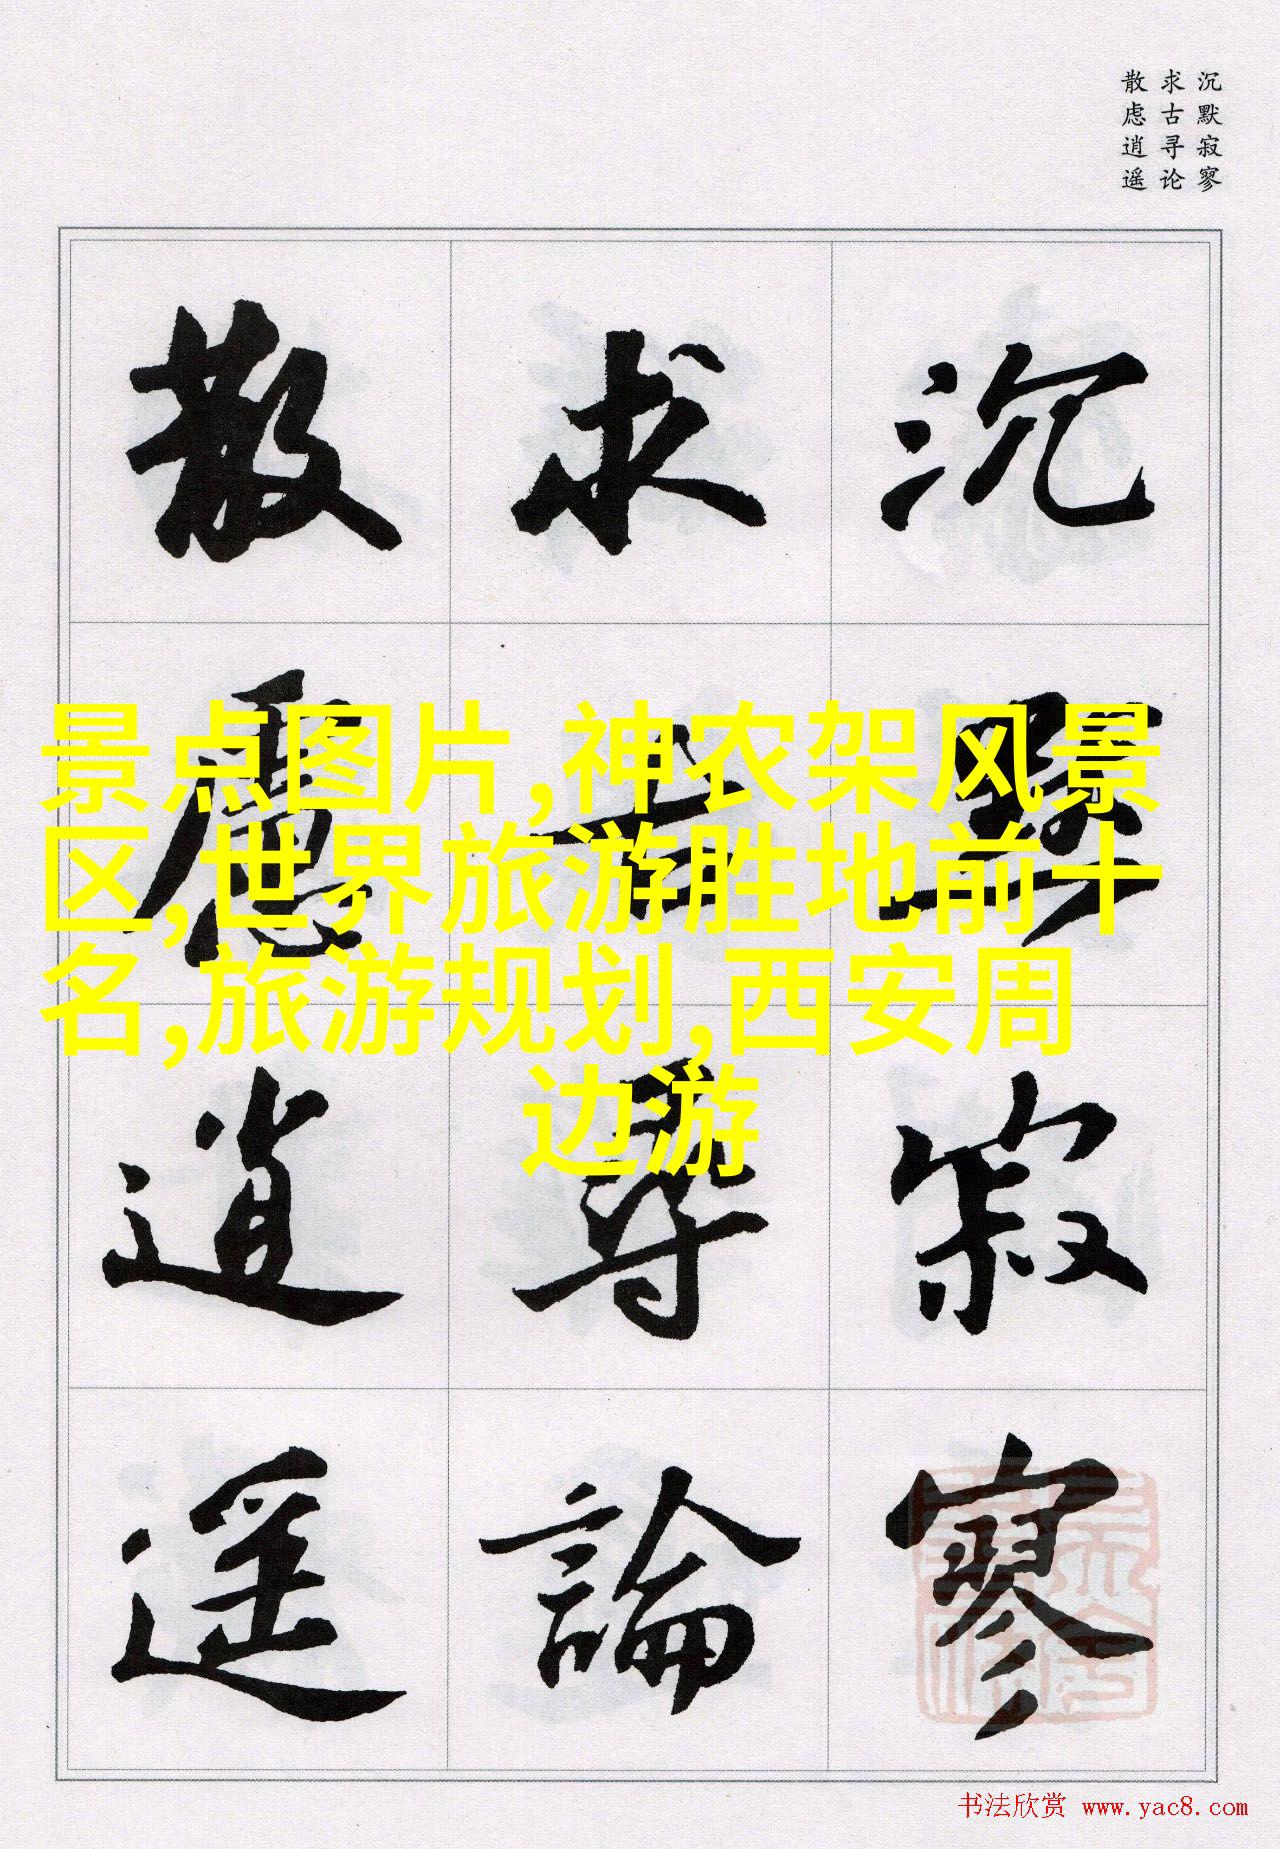 沉默寂寥
求古寻论
散虑逍遥
沉默寂寥
求古尋論
散慮逍遥
景点图片,神农架风景
区,世界旅游胜地前十
名,旅游规划,西安周
边游
书法欣赏 www.yac8.com